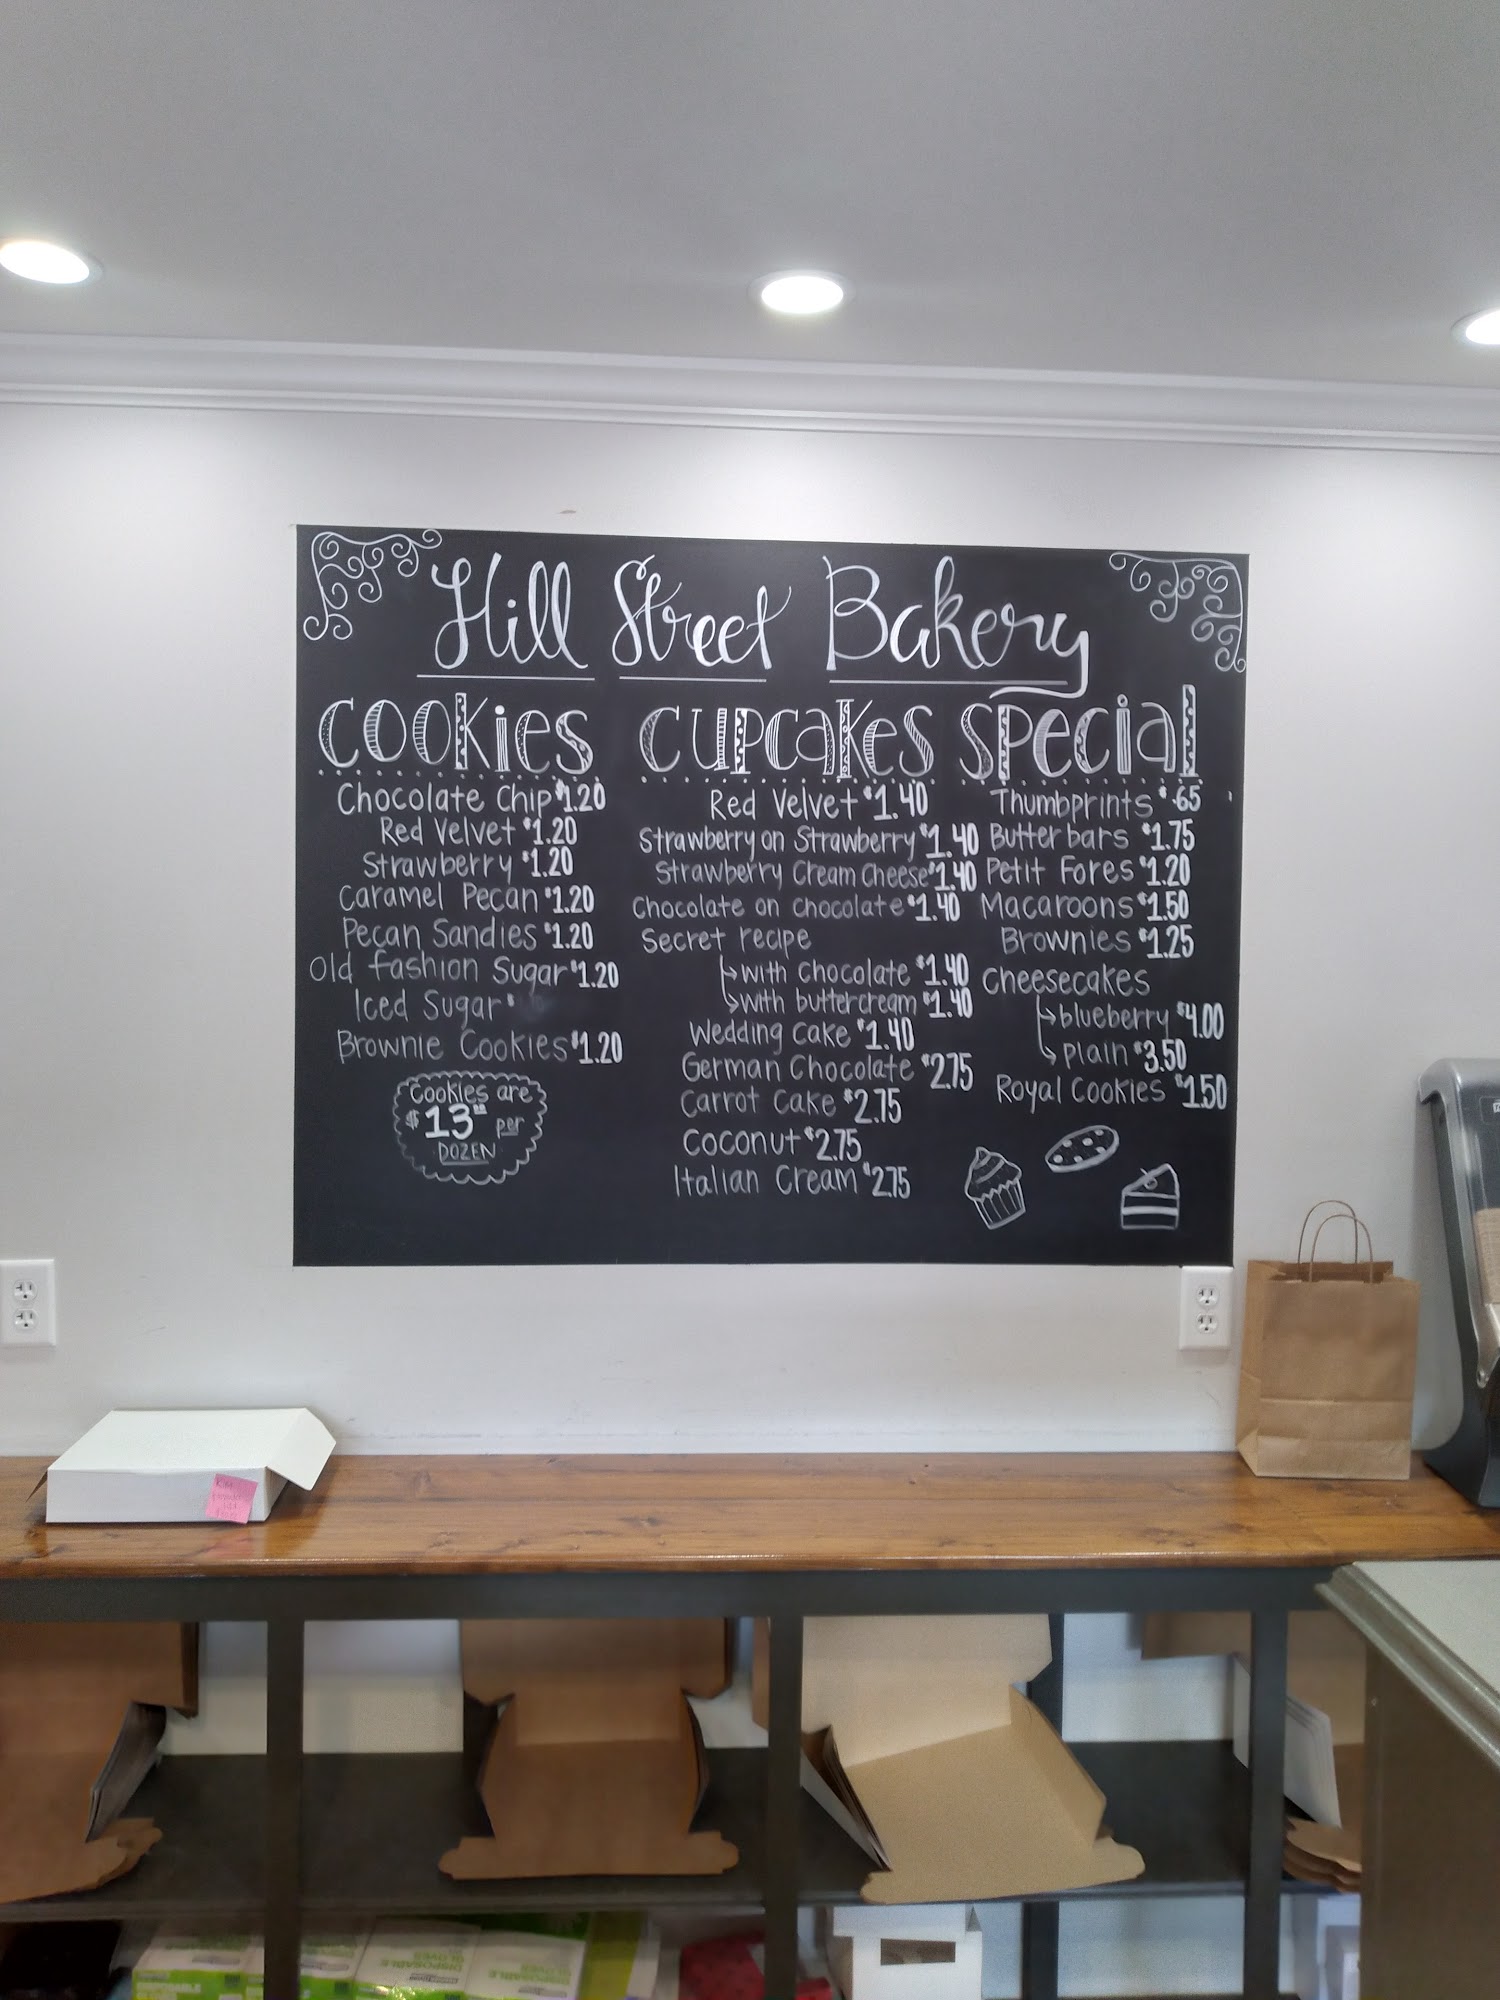 Hill Street Bakery
Cookies
Chocolate Chip $1.20
Red Velvet $1.20
Strawberry $1.20
Caramel Pecan $1.20
Pecan Sandies $1.20
Old fashion Sugar $1.20
Iced Sugar $
Brownie Cookies $1.20
Cookies are
$13.00 per
DOZEN
Cupcakes
Red Velvet $1.40
Strawberry on Strawberry $1.40
Strawberry Cream Cheese $1.40
Chocolate on Chocolate $1.40
Secret recipe
↳with Chocolate $1.40
↳with buttercream $1.40
Wedding Cake $1.40
German Chocolate $2.75
Carrot Cake $2.75
Coconut $2.75
Italian Cream $2.75
Special
Thumbprints $.65
Butter bars $1.75
Petit Fores $1.20
Macaroons $1.50
Brownies $1.25
Cheesecakes
↳blueberry $4.00
↳plain $3.50
Royal Cookies $1.50
DISPOSABLE
GLOVES